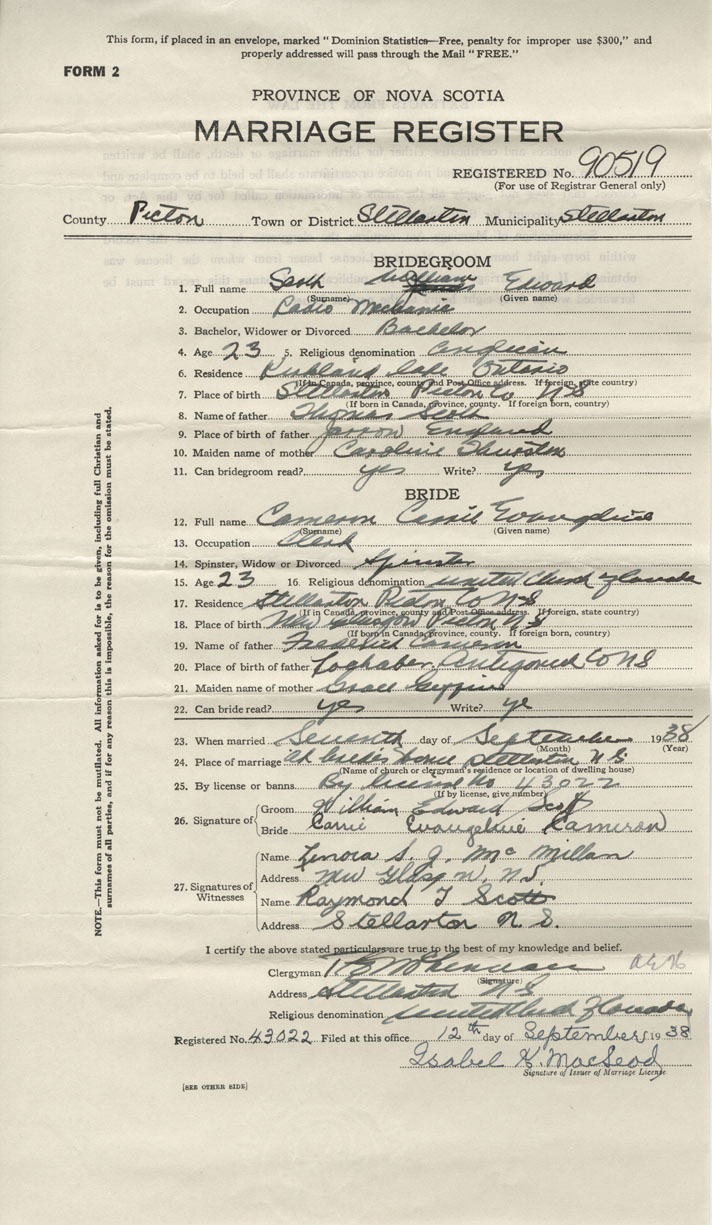 This form, if placed in an envelope, marked "Dominion Statistics—Free, penalty for improper use $300," and
properly addressed will pass through the Mail "FREE."
FORM 2
PROVINCE OF NOVA SCOTIA
MARRIAGE REGISTER
REGISTERED No. 90519
(For use of Registrar General only)
County Pictou Town or District Stellarton Municipality Stellarton
BRIDEGROOM
1. Full name Scott William Edward
(Surname) (Given name)
2. Occupation Radio Mechanic
3. Bachelor, Widower or Divorced Bachelor
4. Age 23 5. Religious denomination Anglican
6. Residence Kirkland Lake Ontario
(If in Canada, province, county and Post Office address. If foreign, state country)
7. Place of birth Stellarton Pictou Co NS
(If born in Canada, province, county. If foreign born, county)
8. Name of father Thomas Scott
9. Place of birth of father Jarrow England
10. Maiden name of mother Caroline Thurston
11. Can bridegroom read? yes Write? yes
BRIDE
12. Full name Cameron Carrie Evangeline
(Surname) (Given name)
13. Occupation Clerk
14. Spinster, Widow or Divorced Spinster
15. Age 23 16. Religious denomination United Church of Canada
17. Residence Stellarton Pictou Co NS
(If in Canada, province, county and Post Office address. If foreign, state country)
18. Place of birth New Glasgow Pictou NS
(If born in Canada, province, county. If foreign born, county)
19. Name of father Frederick Cameron
20. Place of birth of father Loghaber, Antigonish Co NS
21. Maiden name of mother Grace
22. Can bride read? yes Write? ye
23. When married Seventh day of September 1938
(Month) (Year)
24. Place of marriage At brides home Stellarton N S
(Name of church or clergyman's residence or location of dwelling house)
25. By license or banns By license No 43022
(If by license, give number)
26. Signature of
Groom William Edward Scott
Bride Carrie Evangeline Cameron
27. Signatures of Witnesses
Name Lenora S. J. McMillan
Address New Glasgow, N.S.
Name Raymond T Scott
Address Stellarton N. S.
I certify the above stated particulars are true to the best of my knowledge and belief.
Clergyman
(Signature)
Address Stellarton N S
Religious denomination United Church of Canada
Registered No. 43022 Filed at this office 12th day of September 1938
Isabel K. MacLeod
Signature of Issuer of Marriage License
[SEE OTHER SIDE]
NOTE.—This form must not be mutilated. All information asked for is to be given, including full Christian and
surnames of all parties, and if for any reason this is impossible, the reason for the omission must be stated.